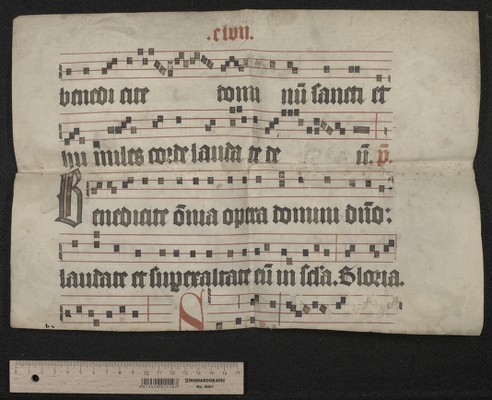 .clvii.
benedicite domi nū sancti et
hu miles corde lauda te de ū. p̄.
Benedicite ōnia opera domini dn̄o:
laudate et superaltate eū in sc̄la. Gloria.
S
STANDARDGRAPH